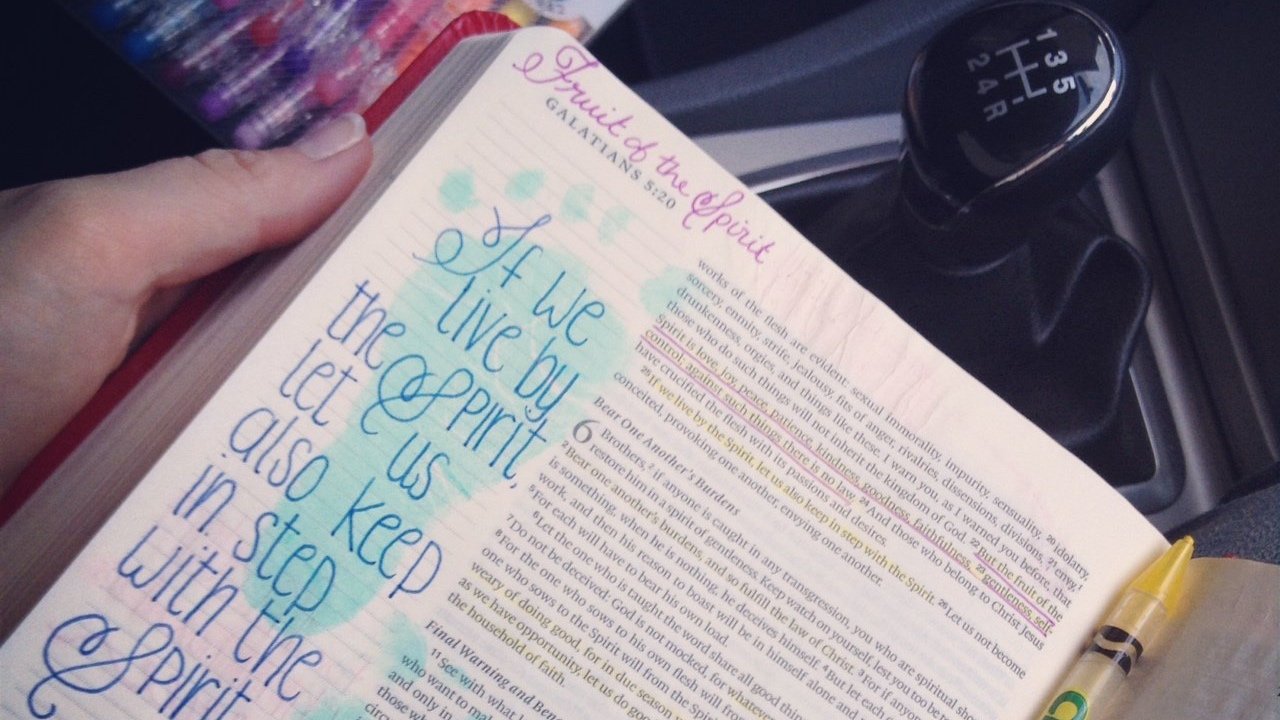 Fruit of the Spirit
GALATIANS 5:20
If we
live by
the Spirit,
let us
also keep
in step
with the
Spirit
works of the flesh are evident: sexual immorality, impurity, sensuality, 20 idolatry,
sorcery, enmity, strife, jealousy, fits of anger, rivalries, dissensions, divisions, 21 envy,
drunkenness, orgies, and things like these. I warn you, as I warned you before, that
those who do such things will not inherit the kingdom of God. 22 But the fruit of the
Spirit is love, joy, peace, patience, kindness, goodness, faithfulness, 23 gentleness, self-
control; against such things there is no law. 24 And those who belong to Christ Jesus
have crucified the flesh with its passions and desires.
25 If we live by the Spirit, let us also keep in step with the Spirit. 26 Let us not become
conceited, provoking one another, envying one another.
Bear One Another's Burdens
6 Brothers, if anyone is caught in any transgression, you who are spiritual
restore him in a spirit of gentleness. Keep watch on yourself, lest you too be
2 Bear one another's burdens, and so fulfill the law of Christ. 3 For if anyone
is something, when he is nothing, he deceives himself. 4 But let each
work, and then his reason to boast will be in himself alone and
5 For each will have to bear his own load.
6 Let the one who is taught the word share all good
7 Do not be deceived: God is not mocked, for whatever
8 For the one who sows to his own flesh will
one who sows to the Spirit will from the
weary of doing good, for in due season
as we have opportunity, let us do good
the household of faith.
Final Warning and
11 See with what
who want to
and only in
those
1 3 5
2 4 R